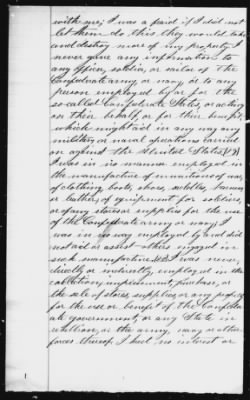 with me; I was afraid if I did not
let them do this they would take
and destroy more of my property. I
never gave any information to
any officer, soldier, or sailor of the
Confederate army or navy or to any
person employed by or for the
so-called Confederate States, or acting
on their behalf, or for their benefit,
which might aid in any way any
military or naval operations carried
on against the United States.
I was in no manner employed in
the manufacture of munitions of war,
of clothing, boots, shoes, saddles, harness
or leather, of equipment for soldiers
or of any stores or supplies for the use
of the Confederate army or navy; I
was in no way employed by and did
not aid or assist others engaged in
such manufacture. I was never,
directly or indirectly, employed in the
collection, impressment, purchase, or
the sale of stores, supplies, or any property
for the use or benefit of the Confeder-
ate government, or any State in
rebellion, or the army, navy or other
forces thereof. I had no interest or